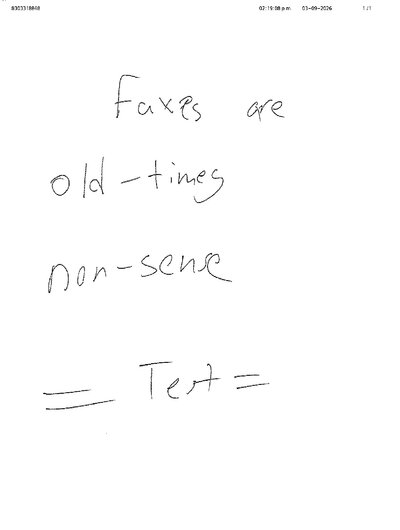 8303318840 02:19:08 p.m. 03-09-2026 1/1
Faxes are
old-times
non-sense
= Test =